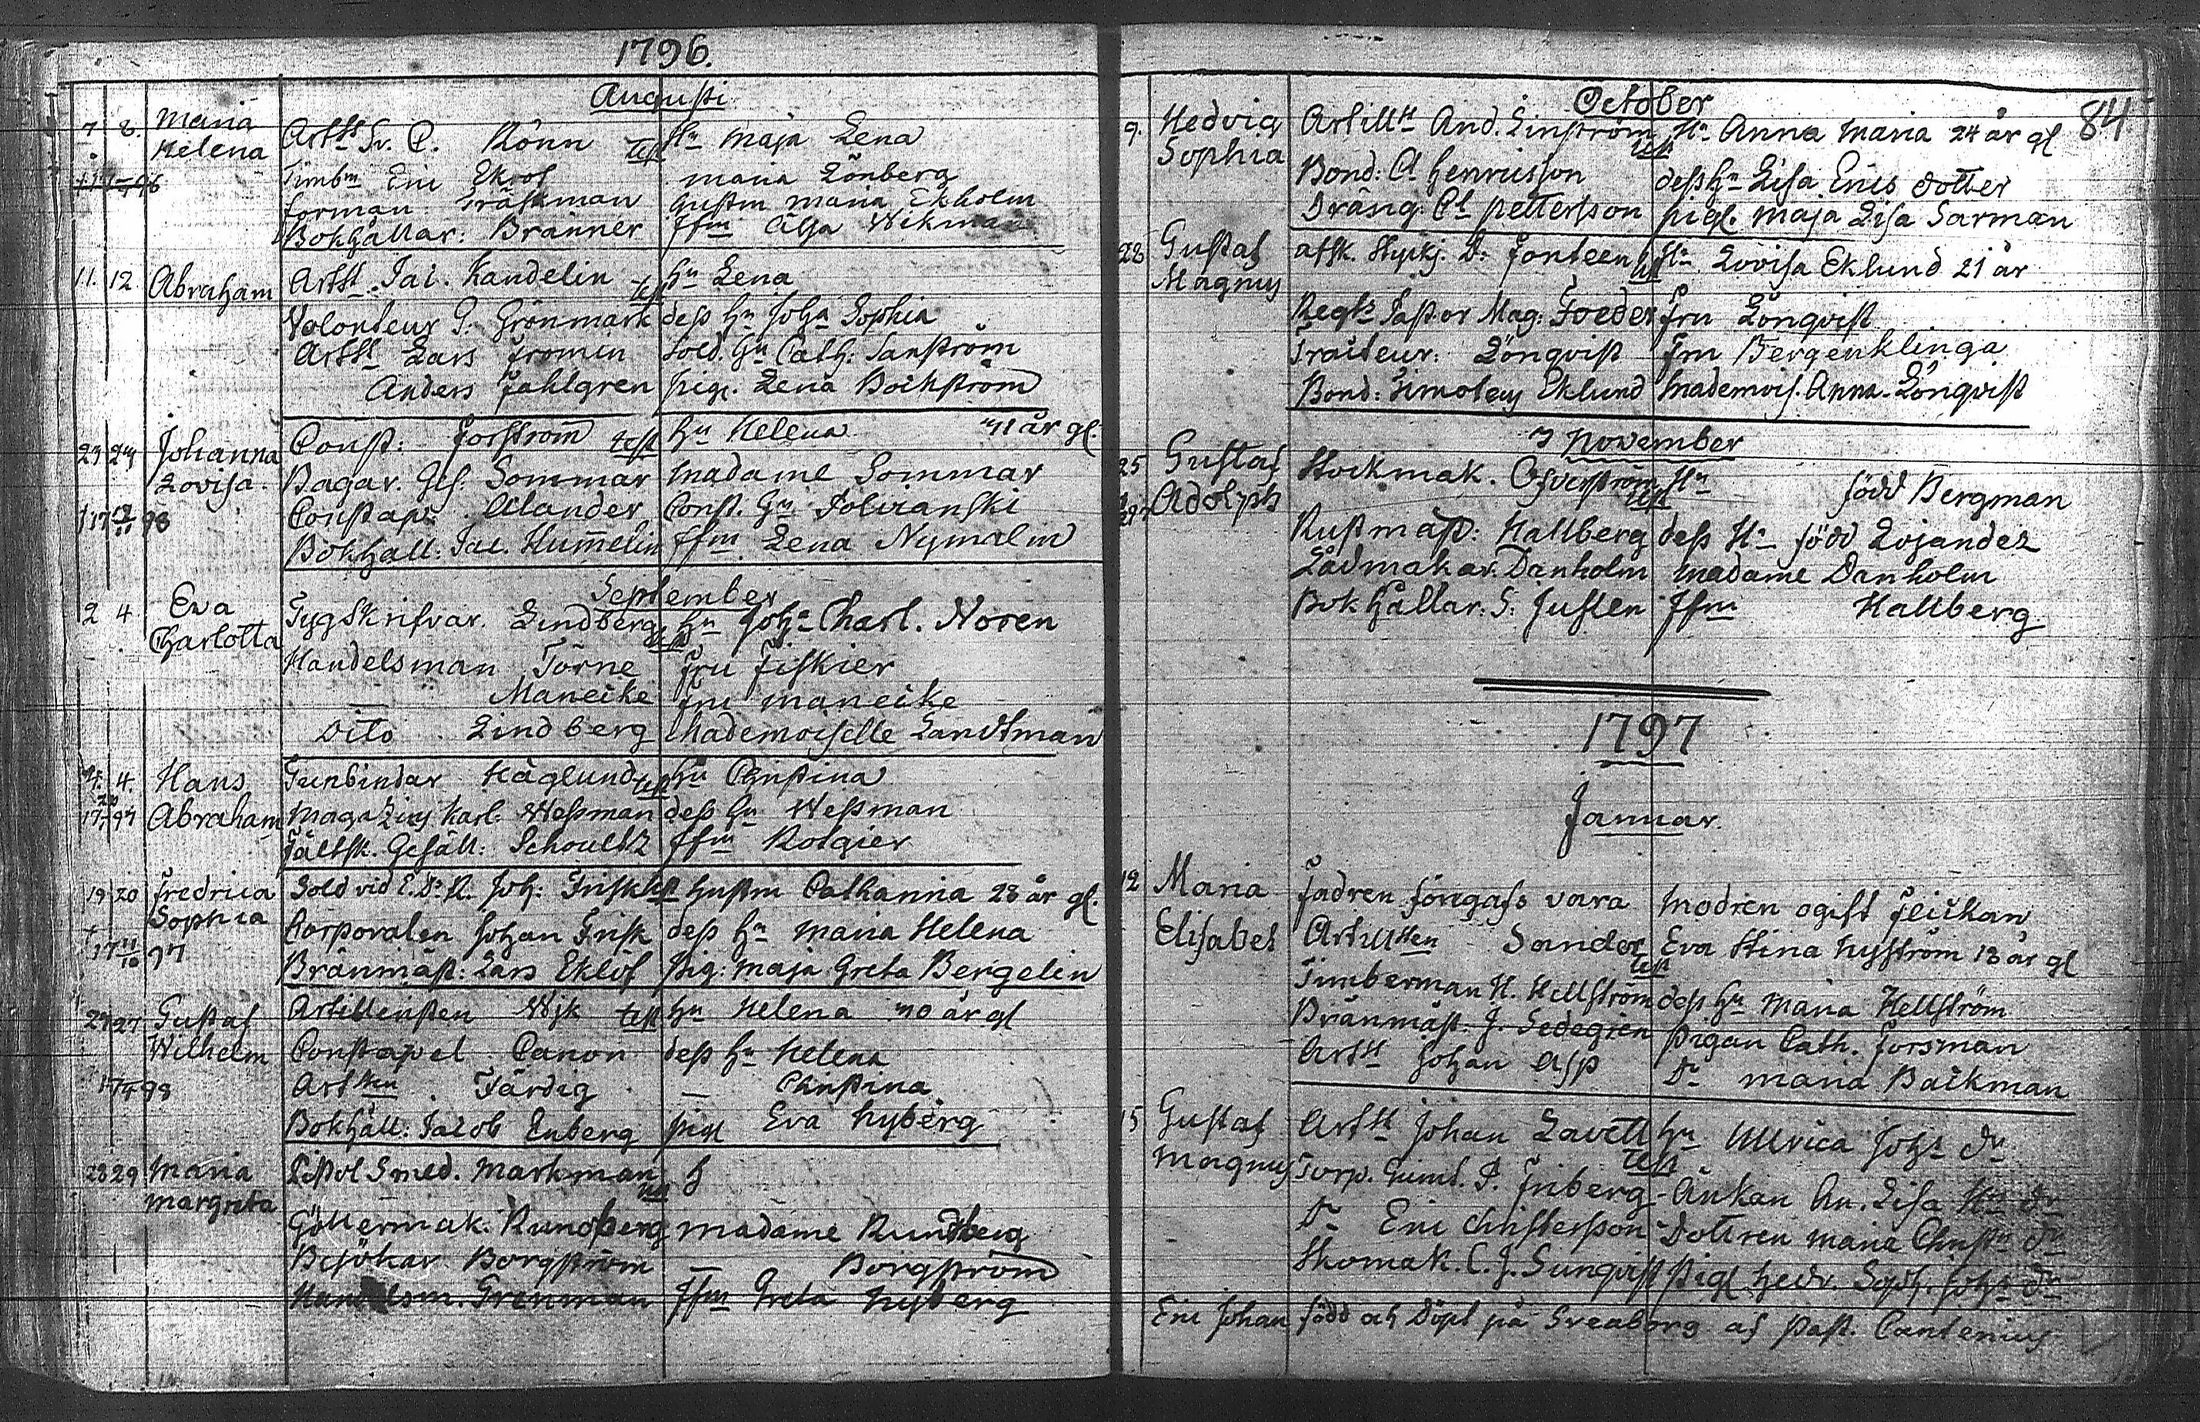 1796.
Augusti
7 8. Maria Artst Sv. C. Rönn test Hu Maja Lena
Helena Timbm Eric Eklöf Maria Lönberg
forman Träskman Gustm Maria Ekholm
Bokhållar: Bränner Jfm Wikman
11. 12 Abraham Artst Jac. Kandelin test hu Lena
Volonteur G. Grönmark dess hu Joha Sophia
Artst Lars Fromen Sold. hu Cath: Sanström
Anders Fahlgren pig. Lena Bockström
23 24 Johanna Const: Forström test hu Helena 41 år gl.
Lovisa. Bagar. Ges. Sommar Madame Sommar
Constap: Alander Const. hu
Bokhåll: Jac. Hummelin Jfm Lena Nymalm
September
2 4. Eva Tygskrifvar. Lindberg test hu Joha Charl. Noren
Charlotta Handelsman Törne Fru Fiskier
— Maneike Fru Maneike
Dito Lindberg Mademoiselle Landtman
4. 4. Hans Tunbindar Häglund test hu Christina
Abraham Magazins Karl. Wessman dess hu Wessman
Fältsk. Gesäll: Schoultz Jfm Rotgier
19 20 Fredrica Sold vid Joh: Frisk test hustru Catharina 28 år gl.
Sophia Corporalen Johan Frisk dess hu Maria Helena
Bränmäst: Lars Eklöf pig: Maja Greta Bergelin
27 Gustaf Artilleristen Wik test hu Helena 40 år gl
Wilhelm Constapel Canon dess hu Helena
Artsten Färdig — Christina
Bokhåll: Jacob Enberg pigl Eva Nyberg
28 29 Maria Pistol Smed. Markman test h
Margreta Göllermak. Rundberg Madame Rundberg
Besökar Borgström — Borgström
Handelsm. Grenman Jfm Greta Nyberg
84
October
9. Hedvig Artillst And. Linström test Hu Anna Maria 24 år gl
Sophia Bond: Cl Henricsson dess hu Lisa Erics dotter
Dräng. Cl Pettersson pigl. Maja Lisa Sarman
22 Gustaf afsk. Styckj. D: Fonteen test Hu Lovisa Eklund 21 år
Magnus
Regts Pastor Mag: Foeder Fru Lönqvist
Traiteur. Lönqvist Fru Bergenklinga
Bond: Timoteus Eklund Mademois. Anna Lönqvist
November
25 Gustaf Stockmak. Öfverström test Hu född Bergman
Adolph
Rustmäst: Hallberg dess Hu född Lojander
Lådmakar. Danholm Madame Danholm
Bokhållar. S: Juslen Jfm Hallberg
1797
Januar.
12 Maria Fadren föregafs vara Modren ogift flickan
Elisabet Artillsten Sander test Eva Stina Nyström 18 år gl
Timberman H. Hellström dess hu Maria Hellström
Bränmäst. J. Sedegren Pigan Cath. Forsman
Artst Johan Asp Do Maria Backman
15 Gustaf Artst Johan Lavett test hu Ullrica Johs dr
Magnus Torp. Guml. P. Friberg Änkan An. Lisa Hs dr
Do Eric Christersson Dottren Maria Christs dr
Skomak. C. J. Sunqvist pigl Hedv. Soph. Johs dr
Eric Johan född och döpt på Sveaborg af Past. Cantenius